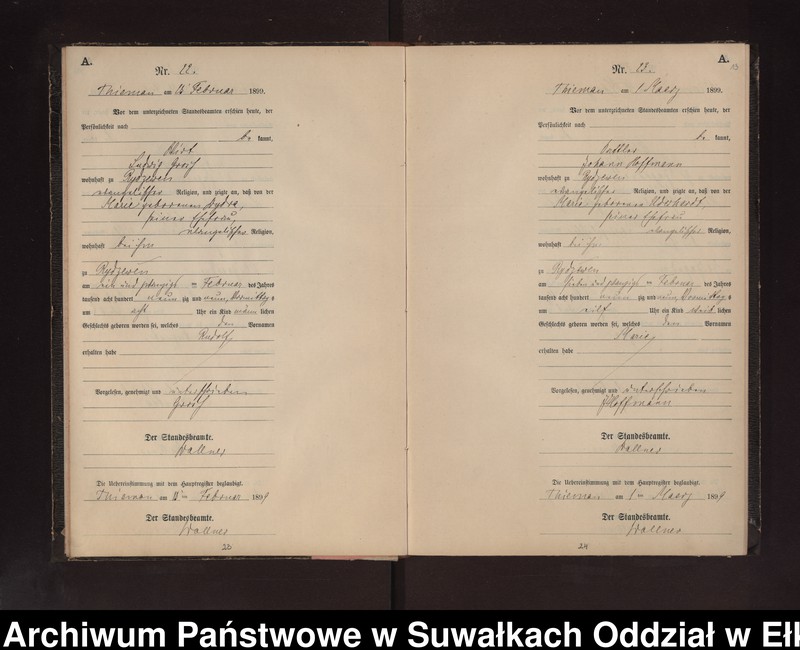 A.
Nr. 22.
Thieman am Februar 1899.
Vor dem unterzeichneten Standesbeamten erschien heute, der
Persönlichkeit nach
be kannt,
Ludwig
wohnhaft zu Rydzewen
evangelischer Religion, und zeigte an, daß von der
Marie geborenen
seiner Ehefrau,
evangelischer Religion,
wohnhaft bei ihm
zu Rydzewen
am ein und zwanzigsten Februar des Jahres
tausend acht hundert neun zig und neun, Vormittags
um acht Uhr ein Kind männ lichen
Geschlechts geboren worden sei, welches den Vornamen
Rudolf,
erhalten habe
Vorgelesen, genehmigt und unterschrieben
Der Standesbeamte.
Wallner
Die Uebereinstimmung mit dem Hauptregister beglaubigt.
Thieman am Februar 1899
Der Standesbeamte.
Wallner
A.
Nr. 23.
Thieman am 1. Maerz 1899.
Vor dem unterzeichneten Standesbeamten erschien heute, der
Persönlichkeit nach
be kannt,
Johann Hoffmann
wohnhaft zu Rydzewen
evangelischer Religion, und zeigte an, daß von der
Marie geborenen
seiner Ehefrau
evangelischer Religion,
wohnhaft bei ihm
zu Rydzewen
am sieben und zwanzigsten Februar des Jahres
tausend acht hundert neun zig und neun, Vormittag s
um elf Uhr ein Kind weib lichen
Geschlechts geboren worden sei, welches den Vornamen
Marie
erhalten habe
Vorgelesen, genehmigt und unterschrieben
Hoffmann
Der Standesbeamte.
Wallner
Die Uebereinstimmung mit dem Hauptregister beglaubigt.
Thieman am 1ten Maerz 1899
Der Standesbeamte.
Wallner
Archiwum Państwowe w Suwałkach Oddział w Ełk